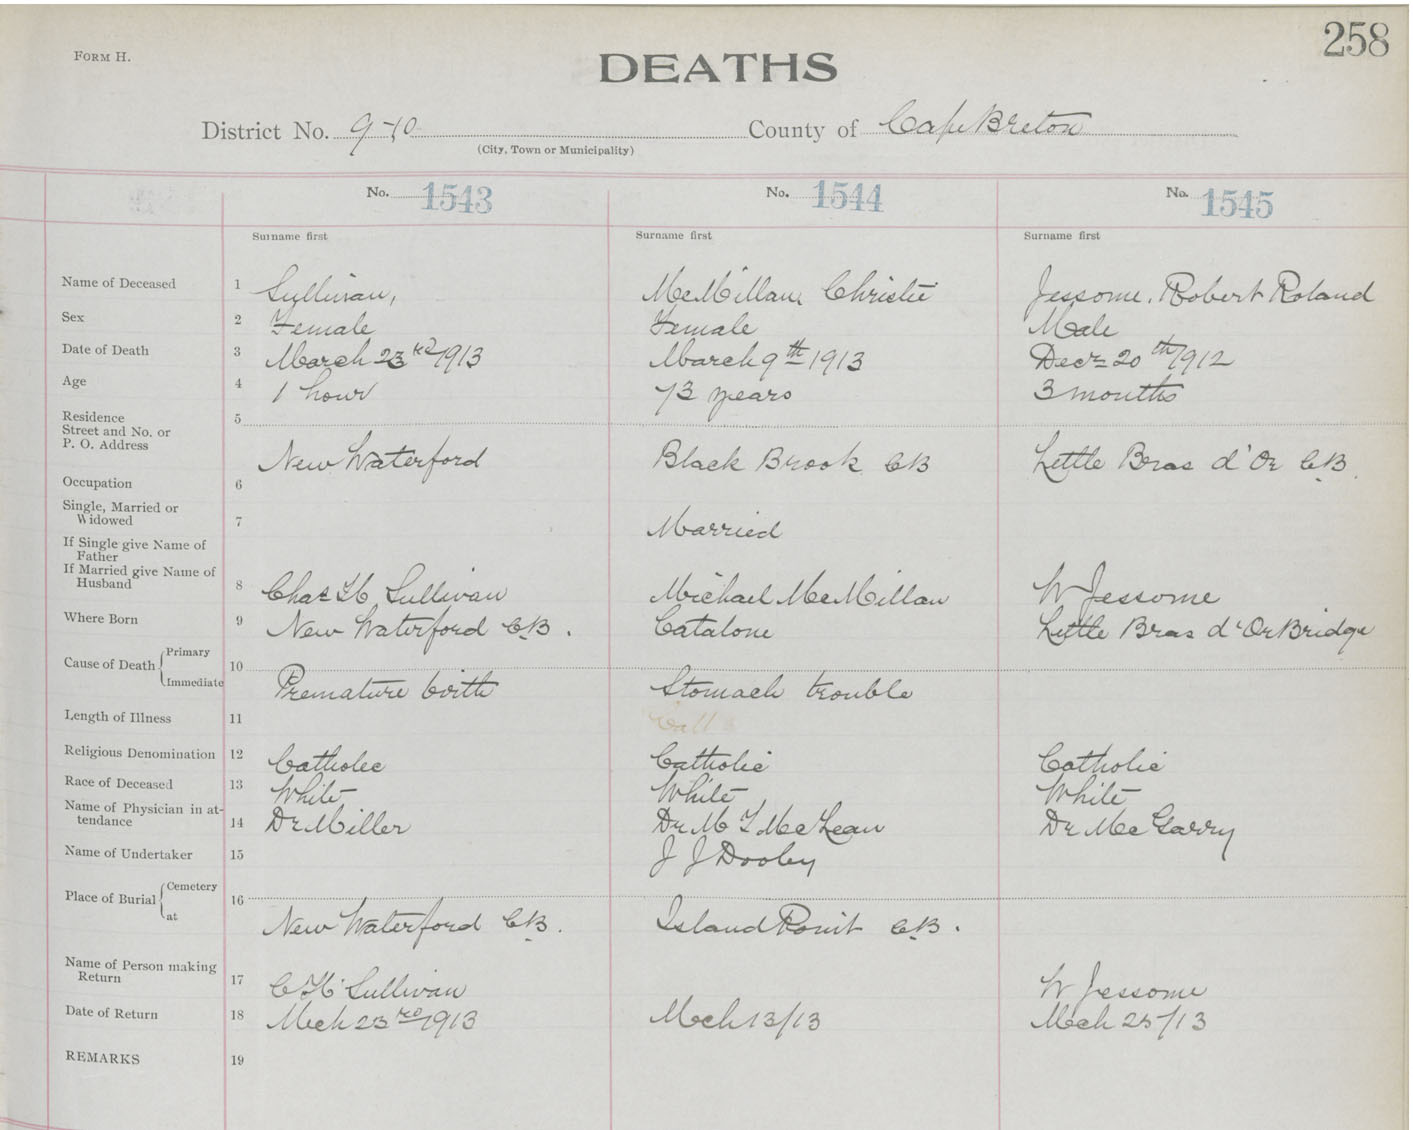 258
FORM H.
DEATHS
District No. 9-10 County of Cape Breton
(City, Town or Municipality)
No. 1543 No. 1544 No. 1545
Surname first Surname first Surname first
Name of Deceased 1 Sullivan, McMillan, Christie Jessome, Robert Roland
Sex 2 Female Female Male
Date of Death 3 March 23rd 1913 March 9th 1913 Decr 20th 1912
Age 4 1 hour 73 years 3 months
Residence
Street and No. or 5
P. O. Address
New Waterford Black Brook CB Little Bras d'Or C.B.
Occupation 6
Single, Married or
Widowed 7 Married
If Single give Name of
Father
If Married give Name of
Husband 8 Chas H Sullivan Michael McMillan W Jessome
Where Born 9 New Waterford C.B. Catalone Little Bras d'Or Bridge
Cause of Death Primary 10
Immediate Premature birth Stomach trouble
Length of Illness 11
Religious Denomination 12 Catholic Catholic Catholic
Race of Deceased 13 White White White
Name of Physician in at-
tendance 14 Dr Miller Dr M T McLean Dr McGarry
Name of Undertaker 15 J J Dooley
Place of Burial Cemetery 16
at New Waterford C.B. Island Point C.B.
Name of Person making
Return 17 C H Sullivan W Jessome
Date of Return 18 Mch 23rd 1913 Mch 13/13 Mch 25/13
REMARKS 19